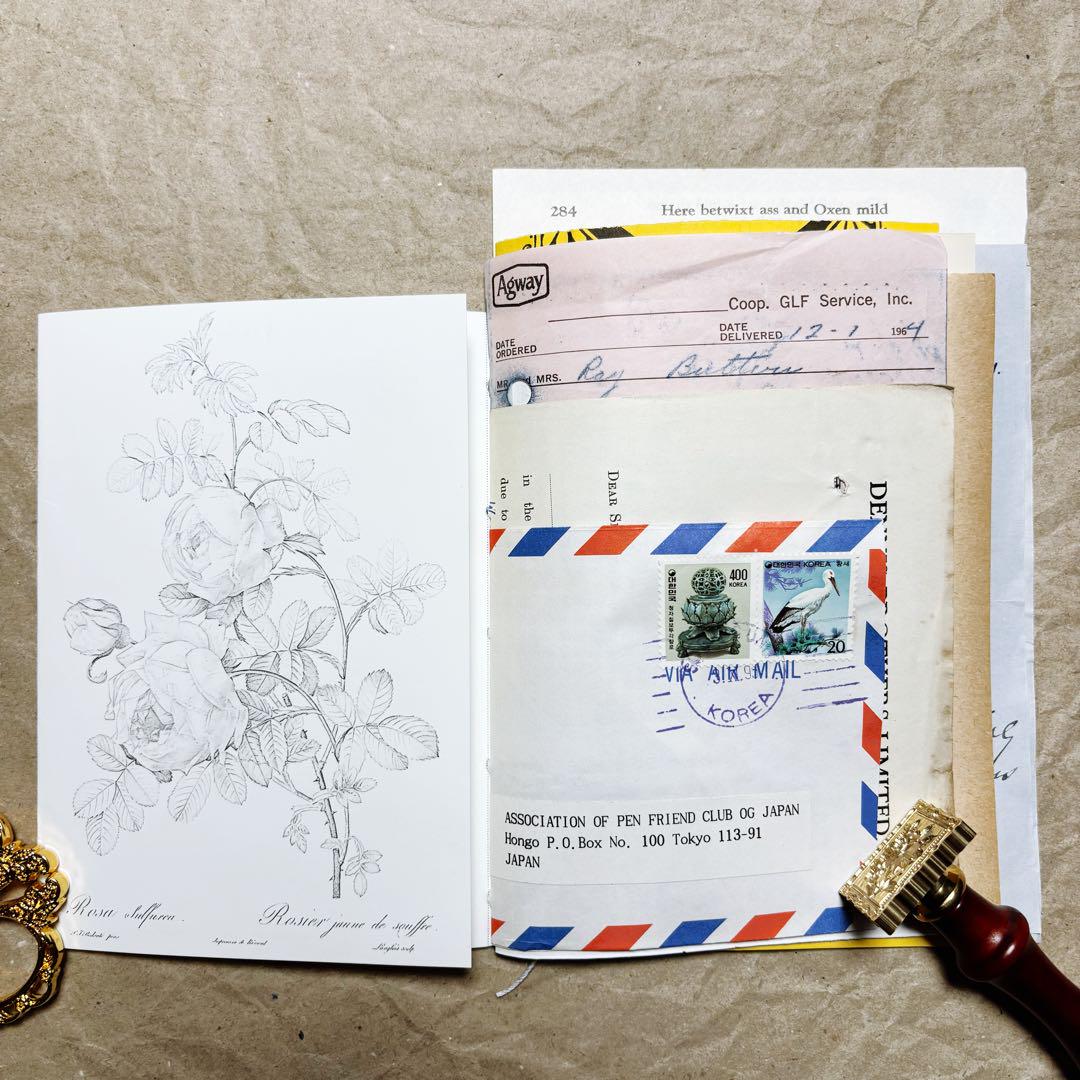 284 Here betwixt ass and Oxen mild
Agway
Coop. GLF Service, Inc.
DATE ORDERED
DATE DELIVERED 12-1 1964
MRS. Ray
in the
due to
DEAR
LIMITED
대한민국
400
KOREA
대한민국 KOREA 황새
20
VIA AIR MAIL
KOREA
ASSOCIATION OF PEN FRIEND CLUB OG JAPAN
Hongo P.O.Box No. 100 Tokyo 113-91
JAPAN
Rosa Sulfurea.
Rosier jaune de souffre.
P. J. Redouté pinx.
Imprimerie de Rémond
Langlois sculp.